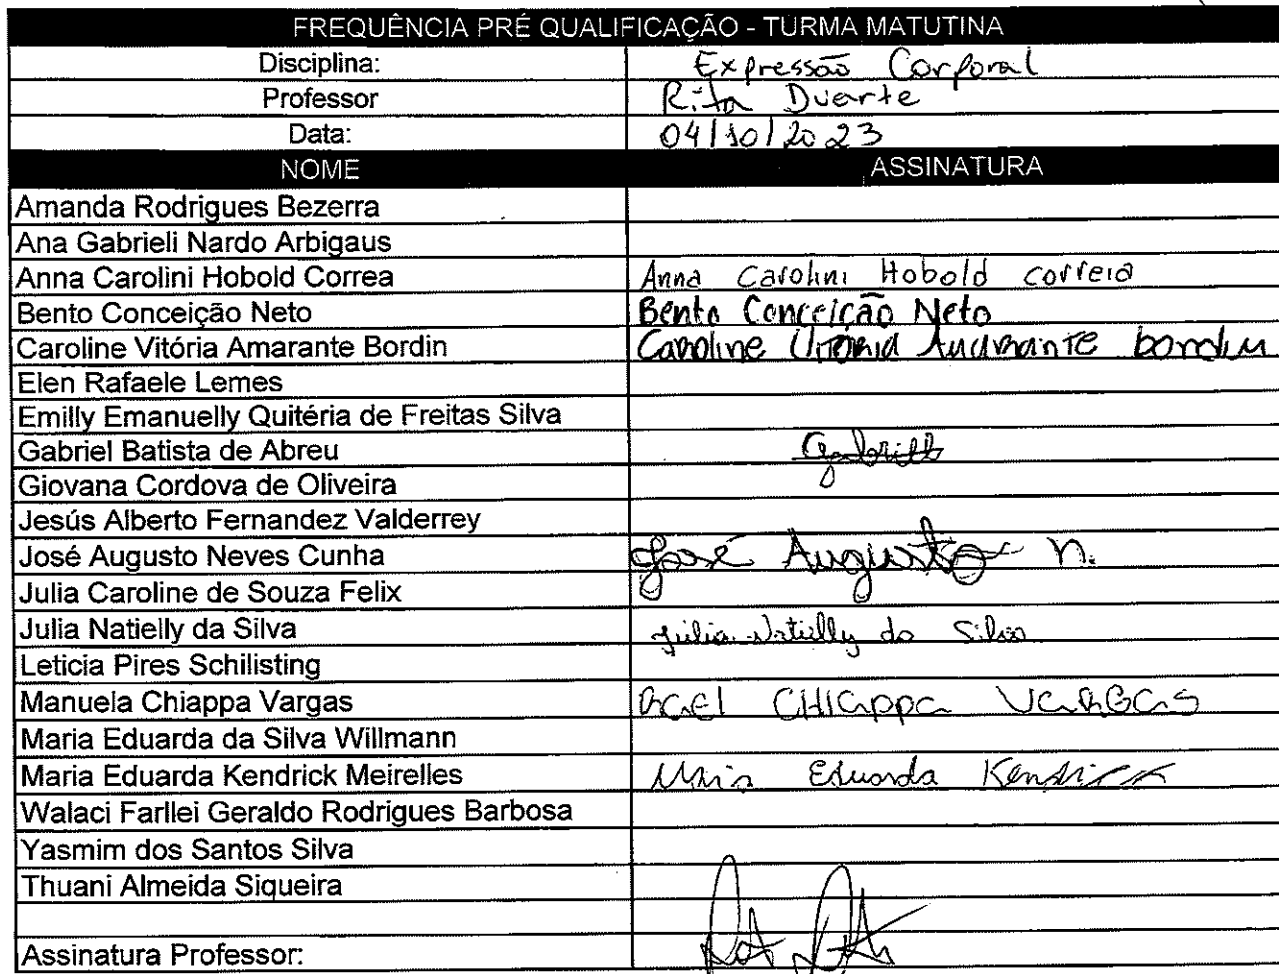 FREQUÊNCIA PRÉ QUALIFICAÇÃO - TURMA MATUTINA
Disciplina: Expressão Corporal
Professor Rita Duarte
Data: 04/10/2023
NOME ASSINATURA
Amanda Rodrigues Bezerra
Ana Gabrieli Nardo Arbigaus
Anna Carolini Hobold Correa Anna Carolini Hobold correia
Bento Conceição Neto Bento Conceição Neto
Caroline Vitória Amarante Bordin Caroline Vitória Amarante bordin
Elen Rafaele Lemes
Emilly Emanuelly Quitéria de Freitas Silva
Gabriel Batista de Abreu
Giovana Cordova de Oliveira
Jesús Alberto Fernandez Valderrey
José Augusto Neves Cunha José Augusto N.
Julia Caroline de Souza Felix
Julia Natielly da Silva Julia Natielly da Silva
Leticia Pires Schilisting
Manuela Chiappa Vargas CHIappa VARGAS
Maria Eduarda da Silva Willmann
Maria Eduarda Kendrick Meirelles Maria Eduarda Kendrick
Walaci Farllei Geraldo Rodrigues Barbosa
Yasmim dos Santos Silva
Thuani Almeida Siqueira
Assinatura Professor: